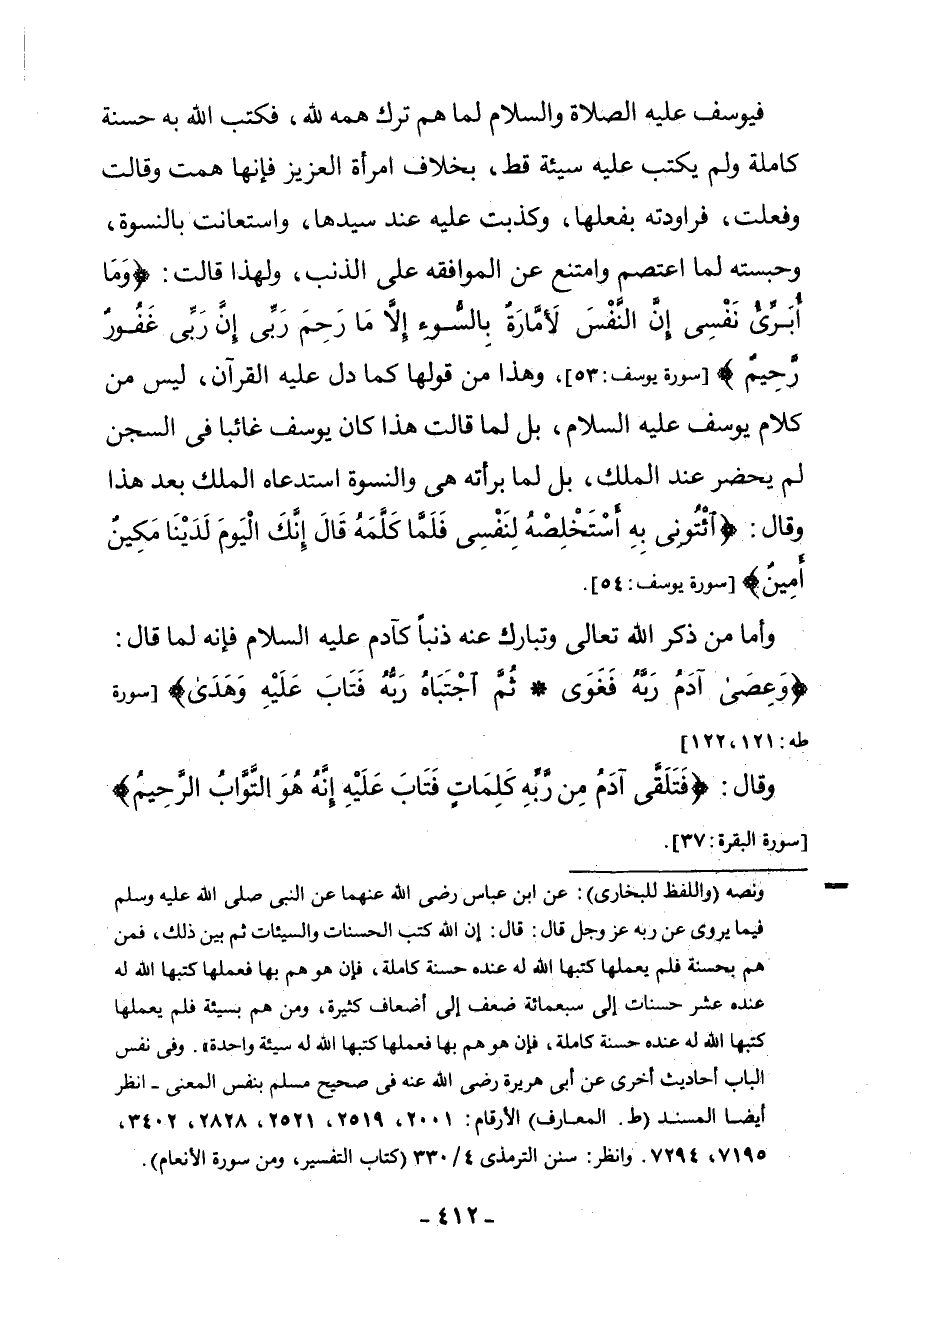 فيوسف عليه الصلاة والسلام لما هم ترك همه لله ، فكتب الله به حسنة
كاملة ولم يكتب عليه سيئة قط ، بخلاف امرأة العزيز فإنها همت وقالت
وفعلت ، فراودته بفعلها ، وكذبت عليه عند سيدها ، واستعانت بالنسوة ،
وحبسته لما اعتصم وامتنع عن الموافقه على الذنب ، ولهذا قالت : ﴿وَمَا
أُبَرِّئُ نَفْسِى إِنَّ النَّفْسَ لَأَمَّارَةٌ بِالسُّوءِ إِلَّا مَا رَحِمَ رَبِّى إِنَّ رَبِّى غَفُورٌ
رَّحِيمٌ ﴾ [سورة يوسف : ٥٣] ، وهذا من قولها كما دل عليه القرآن ، ليس من
كلام يوسف عليه السلام ، بل لما قالت هذا كان يوسف غائبا فى السجن
لم يحضر عند الملك ، بل لما برأته هى والنسوة استدعاه الملك بعد هذا
وقال : ﴿ٱئْتُونِى بِهِ أَسْتَخْلِصْهُ لِنَفْسِى فَلَمَّا كَلَّمَهُ قَالَ إِنَّكَ الْيَوْمَ لَدَيْنَا مَكِينٌ
أَمِينٌ﴾ [سورة يوسف : ٥٤] .
وأما من ذكر الله تعالى وتبارك عنه ذنباً كآدم عليه السلام فإنه لما قال :
﴿وَعِصَىٰ آدَمُ رَبَّهُ فَغَوَى * ثُمَّ ٱجْتَبَاهُ رَبُّهُ فَتَابَ عَلَيْهِ وَهَدَىٰ﴾ [سورة
طه : ١٢١ ، ١٢٢]
وقال : ﴿فَتَلَقَّى آدَمُ مِن رَّبِّهِ كَلِمَاتٍ فَتَابَ عَلَيْهِ إِنَّهُ هُوَ التَّوَّابُ الرَّحِيمُ﴾
[سورة البقرة : ٣٧] .
ونصه (واللفظ للبخارى) : عن ابن عباس رضى الله عنهما عن النبى صلى الله عليه وسلم
فيما يروى عن ربه عز وجل قال : قال : إن الله كتب الحسنات والسيئات ثم بين ذلك ، فمن
هم بحسنة فلم يعملها كتبها الله له عنده حسنة كاملة ، فإن هو هم بها فعملها كتبها الله له
عنده عشر حسنات إلى سبعمائة ضعف إلى أضعاف كثيرة ، ومن هم بسيئة فلم يعملها
كتبها الله له عنده حسنة كاملة ، فإن هو هم بها فعملها كتبها الله له سيئة واحدة» . وفى نفس
الباب أحاديث أخرى عن أبى هريرة رضى الله عنه فى صحيح مسلم بنفس المعنى ـ انظر
أيضا المسند (ط . المعارف) الأرقام : ٢٠٠١ ، ٢٥١٩ ، ٢٥٢١ ، ٢٨٢٨ ، ٣٤٠٢ ،
٧١٩٥ ، ٧٢٩٤ . وانظر : سنن الترمذى ٤/ ٣٣٠ (كتاب التفسير ، ومن سورة الأنعام) .
ـ ٤١٢ ـ